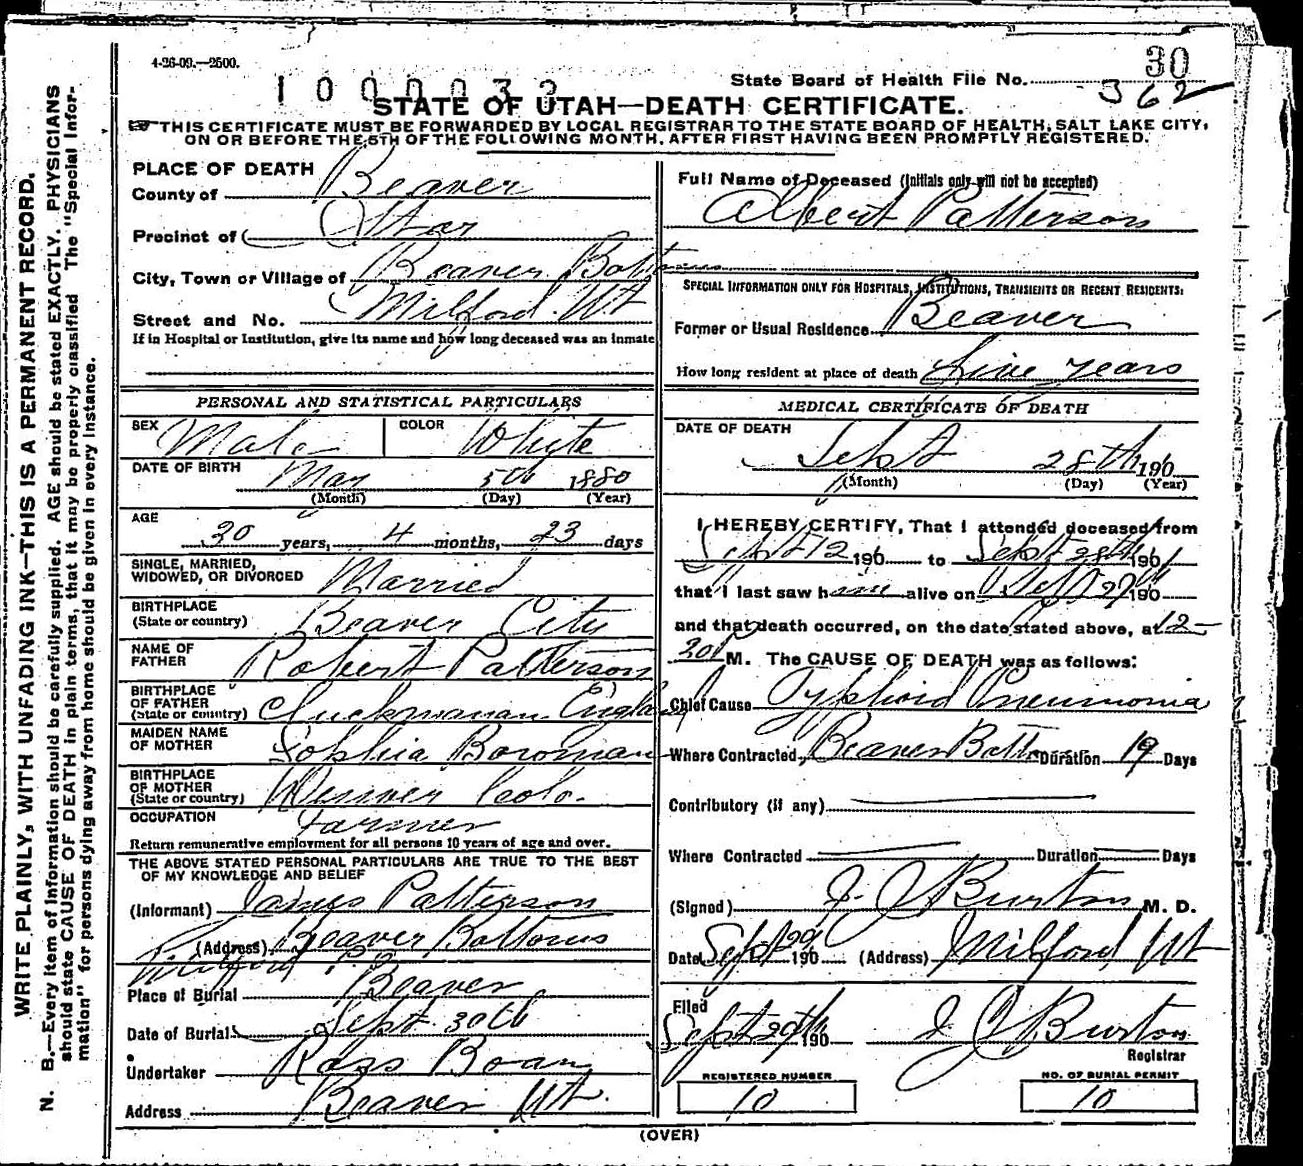 4-26-09.—2500.
1000032
State Board of Health File No. 30
362
STATE OF UTAH—DEATH CERTIFICATE.
THIS CERTIFICATE MUST BE FORWARDED BY LOCAL REGISTRAR TO THE STATE BOARD OF HEALTH, SALT LAKE CITY,
ON OR BEFORE THE 5TH OF THE FOLLOWING MONTH, AFTER FIRST HAVING BEEN PROMPTLY REGISTERED.
PLACE OF DEATH
County of Beaver
Precinct of Star
City, Town or Village of Beaver Bottoms
Street and No. Milford. Ut
If in Hospital or Institution, give its name and how long deceased was an inmate
PERSONAL AND STATISTICAL PARTICULARS
SEX Male COLOR Whyte
DATE OF BIRTH May 5th 1880
(Month) (Day) (Year)
AGE
30 years, 4 months, 23 days
SINGLE, MARRIED,
WIDOWED, OR DIVORCED Married
BIRTHPLACE
(State or country) Beaver City
NAME OF
FATHER Robert Patterson
BIRTHPLACE
OF FATHER
(State or country) England
MAIDEN NAME
OF MOTHER Sophia Bowman
BIRTHPLACE
OF MOTHER
(State or country) Denver Colo.
OCCUPATION Farmer
Return remunerative employment for all persons 10 years of age and over.
THE ABOVE STATED PERSONAL PARTICULARS ARE TRUE TO THE BEST
OF MY KNOWLEDGE AND BELIEF
(Informant) James Patterson
(Address) Beaver Bottoms
Milford
Place of Burial Beaver
Date of Burial Sept 30th
Undertaker Ross
Address Beaver Ut.
Full Name of Deceased (Initials only will not be accepted)
Albert Patterson
SPECIAL INFORMATION ONLY FOR HOSPITALS, INSTITUTIONS, TRANSIENTS OR RECENT RESIDENTS:
Former or Usual Residence Beaver
How long resident at place of death five years
MEDICAL CERTIFICATE OF DEATH
DATE OF DEATH
Sept 28th 190
(Month) (Day) (Year)
I HEREBY CERTIFY, That I attended deceased from
Sept 12 190 to Sept 28th 190
that I last saw him alive on Sept 27th 190
and that death occurred, on the date stated above, at 12-
M. The CAUSE OF DEATH was as follows:
Chief Cause Typhoid Pneumonia
Where Contracted, Beaver Bottoms Duration 19 Days
Contributory (if any)
Where Contracted Duration Days
(Signed) J. C Burton M. D.
Date Sept 29 190 (Address) Milford Ut
Filed
Sept 29th 190 J C Burton
Registrar
REGISTERED NUMBER
10
NO. OF BURIAL PERMIT
10
(OVER)
WRITE PLAINLY, WITH UNFADING INK—THIS IS A PERMANENT RECORD.
N. B.—Every item of information should be carefully supplied. AGE should be stated EXACTLY. PHYSICIANS
should state CAUSE OF DEATH in plain terms, that it may be properly classified The "Special Infor-
mation" for persons dying away from home should be given in every instance.